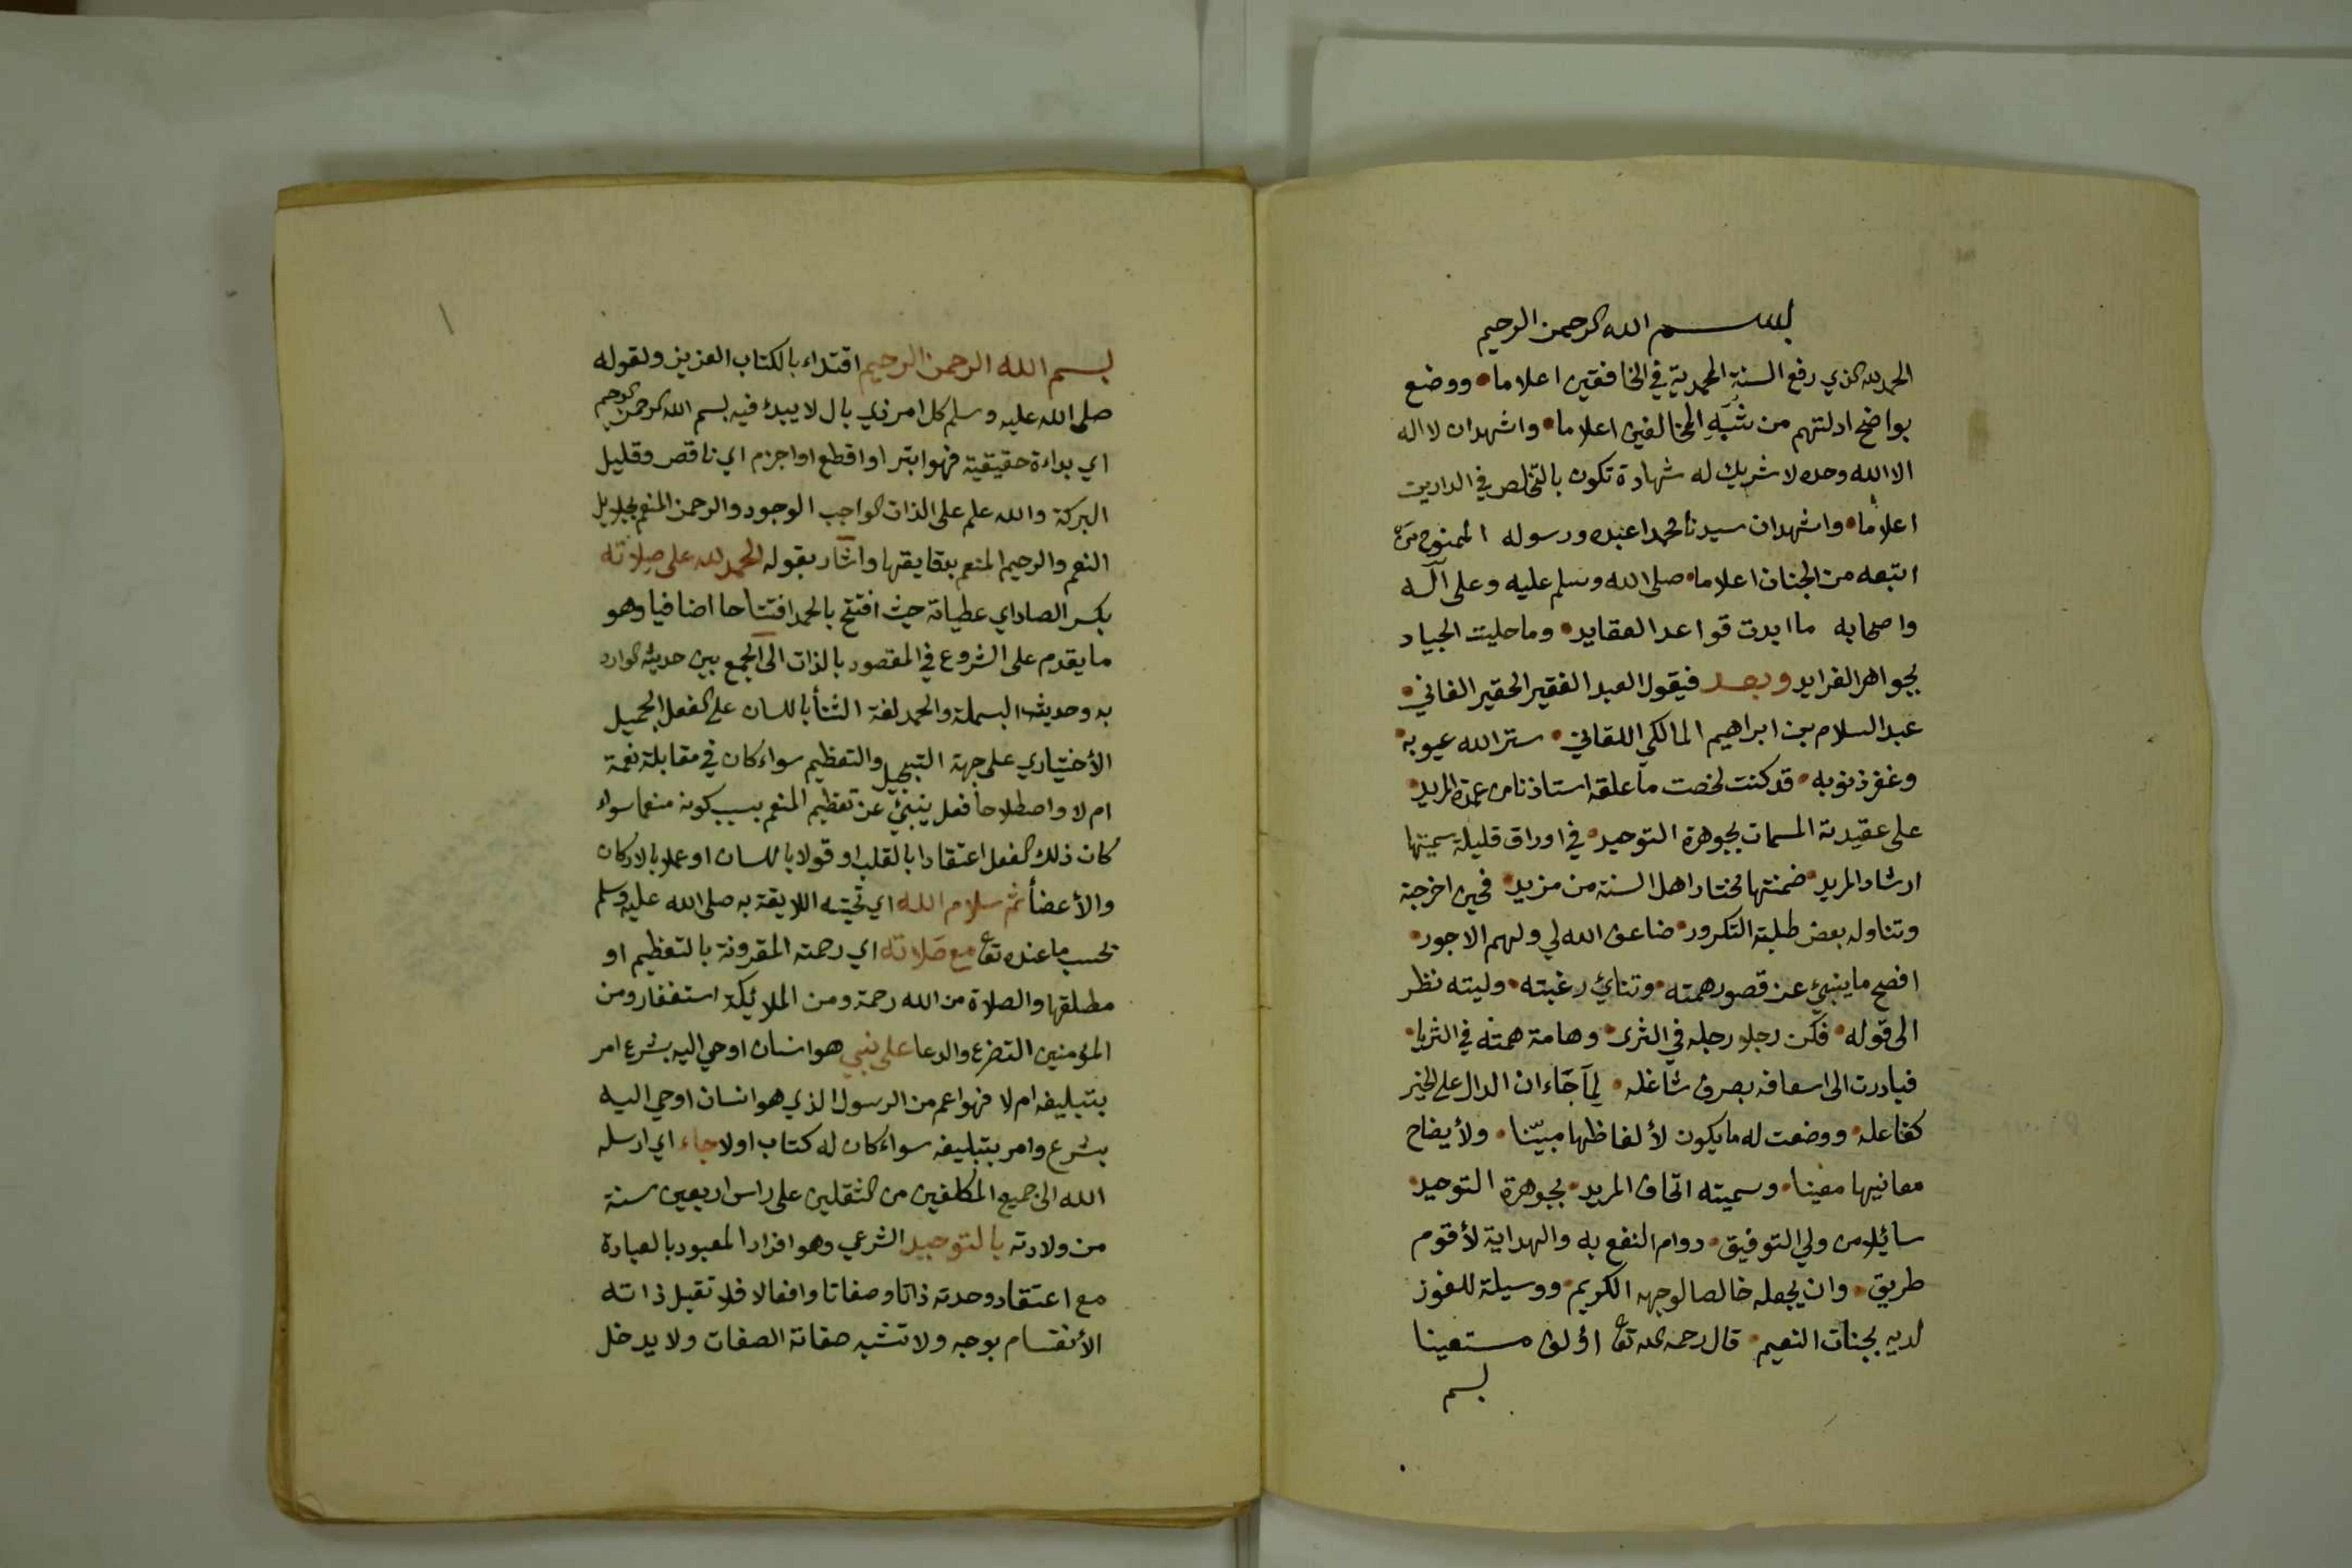 بسم الله الرحمن الرحيم
الحمد لله الذي رفع السنة المحمدية في الخافقين اعلاما • ووضع
بواضح ادلتهم من شبه المخالفين اعلاما • واشهد ان لا اله
الا الله وحده لا شريك له شهادة تكون بالتخلص في الدارين
اعلاما • واشهد ان سيدنا محمدا عبده ورسوله الممنوح من
اتبعه من الجنان اعلاما • صلى الله وسلم عليه وعلى آله
واصحابه ما ابدت قواعد العقايد • وما حليت الجياد
بجواهر الفرايد وبعد فيقول العبد الفقير الحقير الفاني •
عبد السلام بن ابراهيم المالكي اللقاني • ستر الله عيوبه •
وغفر ذنوبه • قد كنت لخصت ما علقه استاذنا من عمدة المريد •
على عقيدته المسمات بجوهرة التوحيد • في اوراق قليلة سميتها
ارشاد المريد • ضمنتها مختار اهل السنة من مزيد • فحين اخرجته
وتناوله بعض طلبة التكرور • ضاعف الله لي ولهم الاجور •
افصح ما ينبئ عن قصور همته • وتنائ رغبته • وليته نظر
الى قوله • فكن رجلا رجله في الثرى • وهامة همته في الثريا •
فبادرت الى اسعافه بصرف شاغله • لما جاء ان الدال على الخير
كفاعله • ووضعت له ما يكون لألفاظها مبينا • ولأيضاح
معانيها معينا • وسميته اتحاف المريد • بجوهرة التوحيد •
سائلا من ولي التوفيق • دوام النفع به والهداية لأقوم
طريق • وان يجعله خالصا لوجهه الكريم • ووسيلة للفوز
لديه بجنات النعيم • قال رحمه الله تعا اؤلف مستعينا
بسم
١
بسم الله الرحمن الرحيم اقتداء بالكتاب العزيز ولقوله
صلى الله عليه وسلم كل امر ذي بال لا يبدء فيه ببسم الله الرحمن الرحيم
اي بداءة حقيقية فهو ابتر او اقطع او اجزم اي ناقص وقليل
البركة والله علم على الذات الواجب الوجود والرحمن المنعم بجلايل
النعم والرحيم المنعم بدقايقها واشار بقوله الحمد لله على صلاته
بكسر الصاد اي عطياته حيث افتتح بالحمد افتتاحا اضافيا وهو
ما يقدم على الشروع في المقصود بالذات الى الجمع بين حديثه الوارد
به وحديث البسملة والحمد لغة الثنأ باللسان على الفعل الجميل
الأختياري على جهة التبجيل والتعظيم سواء كان في مقابلة نعمة
ام لا واصطلاحا فعل ينبئ عن تعظيم المنعم بسبب كونه منعما سواء
كان ذلك الفعل اعتقادا بالقلب او قولا باللسان او عملا بالاركان
والأعضأ ثم سلام الله اي تحيته اللايقة به صلى الله عليه وسلم
بحسب ما عنده تعا مع صلاته اي رحمته المقرونة بالتعظيم او
مطلقها والصلاة من الله رحمة ومن الملائكة استغفار ومن
المؤمنين التضرع والدعا على نبي هو انسان اوحي اليه بشرع امر
بتبليغه ام لا فهو اعم من الرسول الذي هو انسان اوحي اليه
بشرع وامر بتبليغه سواء كان له كتاب او لا جاء اي ارسله
الله الى جميع المكلفين من الثقلين على راس اربعين سنة
من ولادته بالتوحيد الشرعي وهو افراد المعبود بالعبادة
مع اعتقاد وحدته ذاتا وصفاتا وافعالا فلا تقبل ذاته
الأنقسام بوجه ولا تشبه صفاته الصفات ولا يدخل